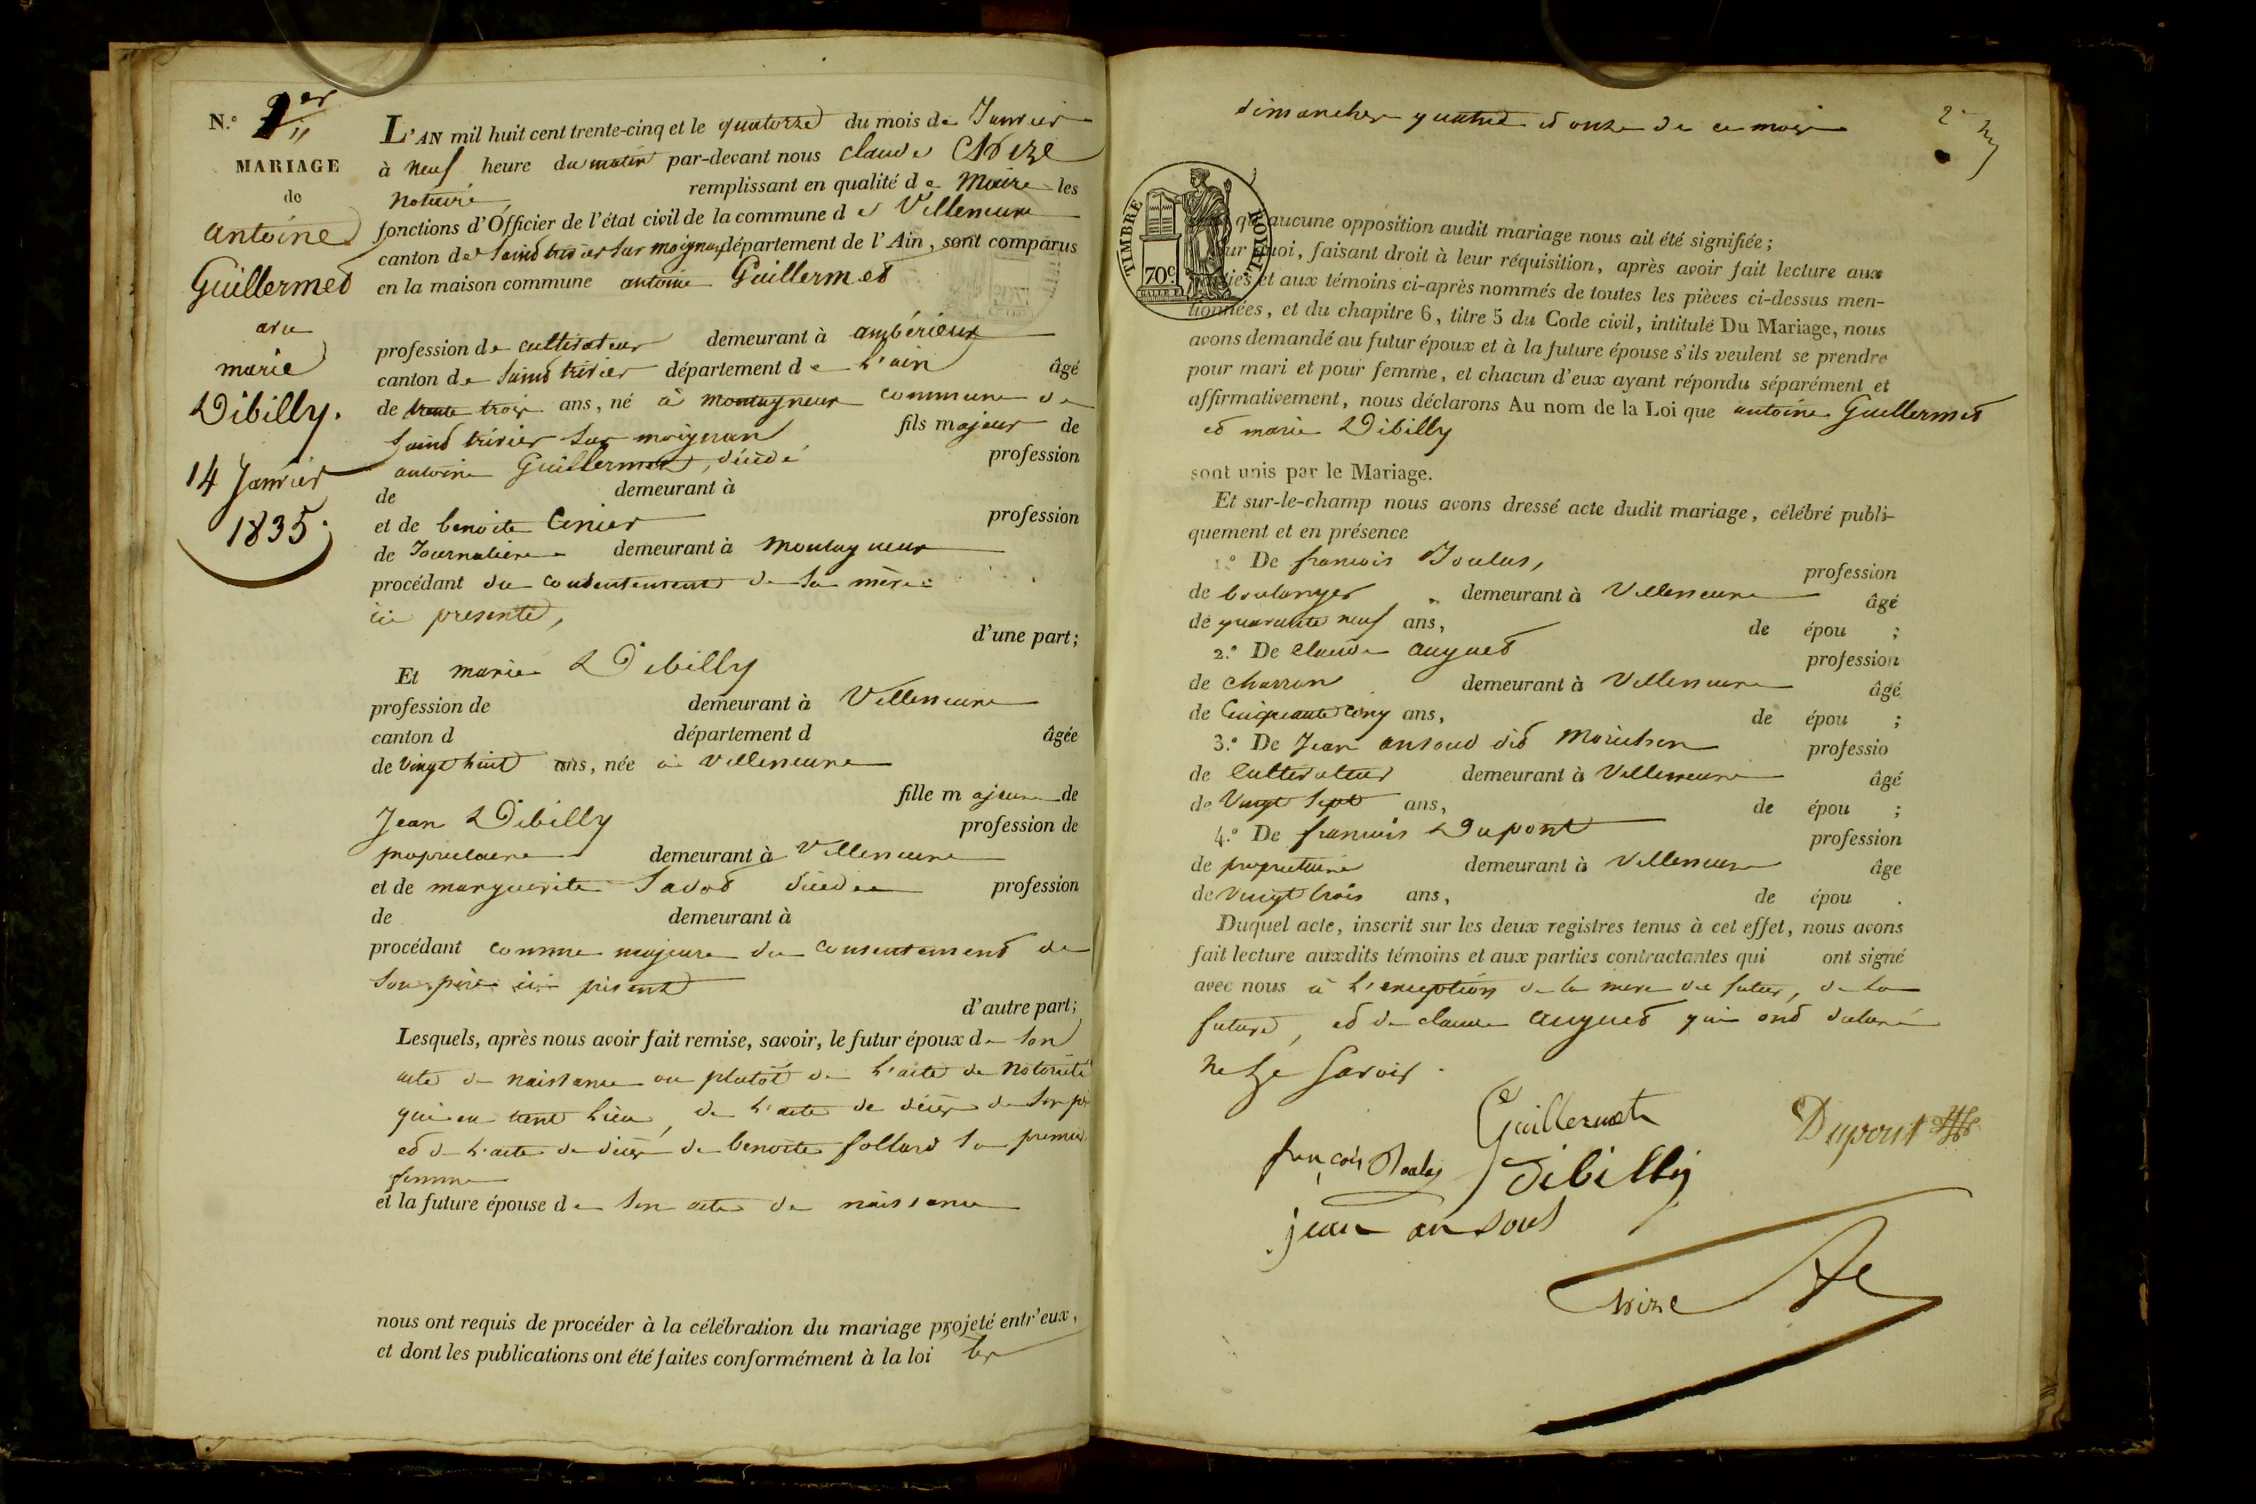 N.° 1er
MARIAGE
de
antoine
Guillermet
avec
marie
Dibilly.
14 Janvier
1835.
L'AN mil huit cent trente-cinq et le quatorze du mois de Janvier
à neuf heure du matin par-devant nous Claude
notaire, remplissant en qualité de Maire les
fonctions d'Officier de l'état civil de la commune de Villeneuve
canton de Saint trivier sur moignans, département de l'Ain, sont comparus
en la maison commune antoine Guillermet
profession de cultivateur demeurant à ambérieux
canton de Saint trivier département de l'ain âgé
de trente trois ans, né à montagneux commune de
Saint trivier sur moignan fils majeur de
antoine Guillermet, décédé profession
de demeurant à
et de benoite Cenier profession
de Journalière demeurant à Montagneux
procédant du consentement de sa mère
ici presente,
d'une part;
Et marie Dibilly
profession de demeurant à Villeneuve
canton d département d âgée
de vingt huit ans, née à Villeneuve
fille majeure de
Jean Dibilly profession de
propriétaire demeurant à Villeneuve
et de marguerite décédée profession
de demeurant à
procédant comme majeure du consentement de
son père ici présent
d'autre part;
Lesquels, après nous avoir fait remise, savoir, le futur époux de son
acte de naissance ou plutôt de l'acte de notoriété
qui en tient lieu, de l'acte de décès de son père
et de l'acte de décès de benoite follard sa premiere
femme
et la future épouse de son acte de naissance
nous ont requis de procéder à la célébration du mariage projeté entr'eux,
et dont les publications ont été faites conformément à la loi les
dimanches quatre et onze de ce mois
TIMBRE ROYAL
70c.
qu'aucune opposition audit mariage nous ait été signifiée;
sur quoi, faisant droit à leur réquisition, après avoir fait lecture aux
parties et aux témoins ci-après nommés de toutes les pièces ci-dessus men-
tionnées, et du chapitre 6, titre 5 du Code civil, intitulé Du Mariage, nous
avons demandé au futur époux et à la future épouse s'ils veulent se prendre
pour mari et pour femme, et chacun d'eux ayant répondu séparément et
affirmativement, nous déclarons Au nom de la Loi que antoine Guillermet
et marie Dibilly
sont unis par le Mariage.
Et sur-le-champ nous avons dressé acte dudit mariage, célébré publi-
quement et en présence
1.° De francois Joulas, profession
de boulanger demeurant à Villeneuve âgé
de quarante neuf ans, de épou ;
2.° De Claude auguet profession
de charron demeurant à Villeneuve âgé
de Cinquante cinq ans, de épou ;
3.° De Jean ansoud dit profession
de Cultivateur demeurant à Villeneuve âgé
de Vingt sept ans, de épou ;
4.° De francois Dupont profession
de propriétaire demeurant à Villeneuve âgé
de vingt trois ans, de épou .
Duquel acte, inscrit sur les deux registres tenus à cet effet, nous avons
fait lecture auxdits témoins et aux parties contractantes qui ont signé
avec nous à l'exception de la mere du futur, de la
future, et de claude auguet qui ont déclaré
ne le savoir.
Guillermet
Dupont
françois
Dibilly
jean ansout